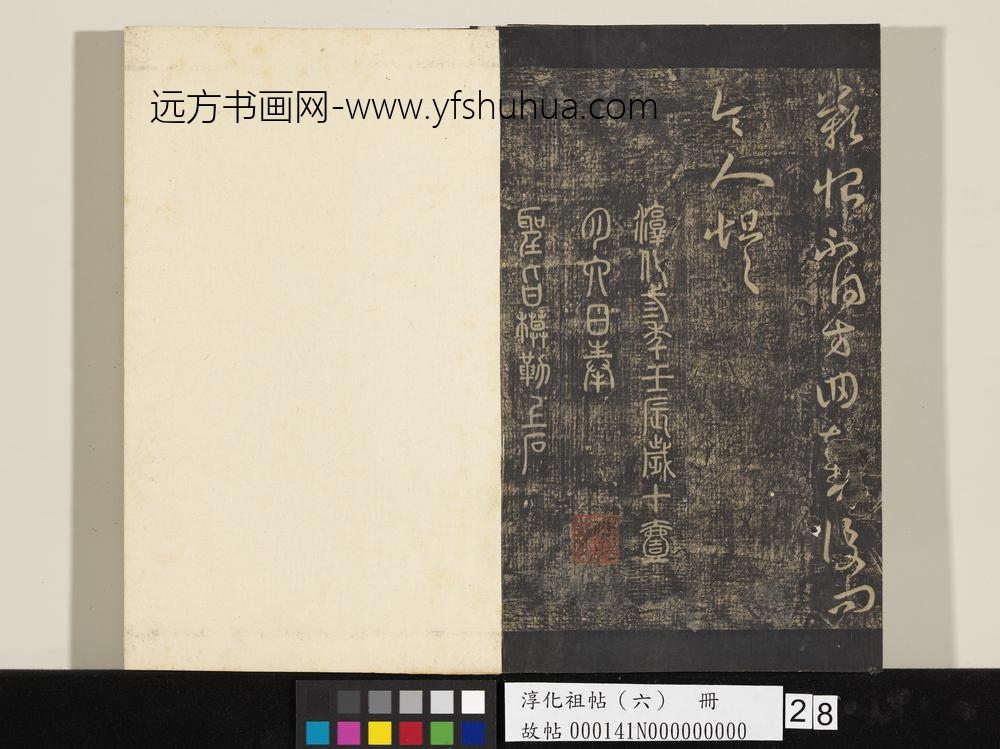 远方书画网-www.yfshuhua.com
恨不方回後問
令人怛
淳化三年壬辰歲十壹
月六日奉
聖旨模勒上石
淳化祖帖（六） 冊
故帖000141N000000000
28